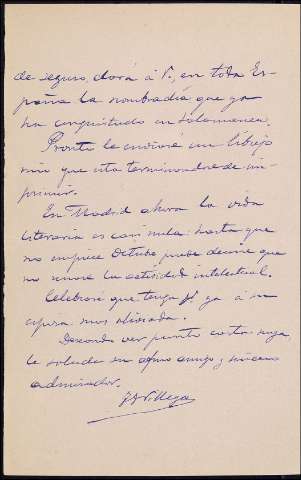 de seguro, dará á V., en toda Es-
paña la nombradía que ya
ha conquistado en Salamanca.
Pronto le enviaré un librejo
mío que está terminándose de im-
primir.
En Madrid ahora la vida
literaria es casi nula: hasta que
no empiece Octubre puede decirse que
no renace la actividad intelectual.
Celebraré que tenga V. ya á su
esposa más aliviada.
Deseando ver pronto carta suya,
le saluda su afmo amigo y sincero
admirador.